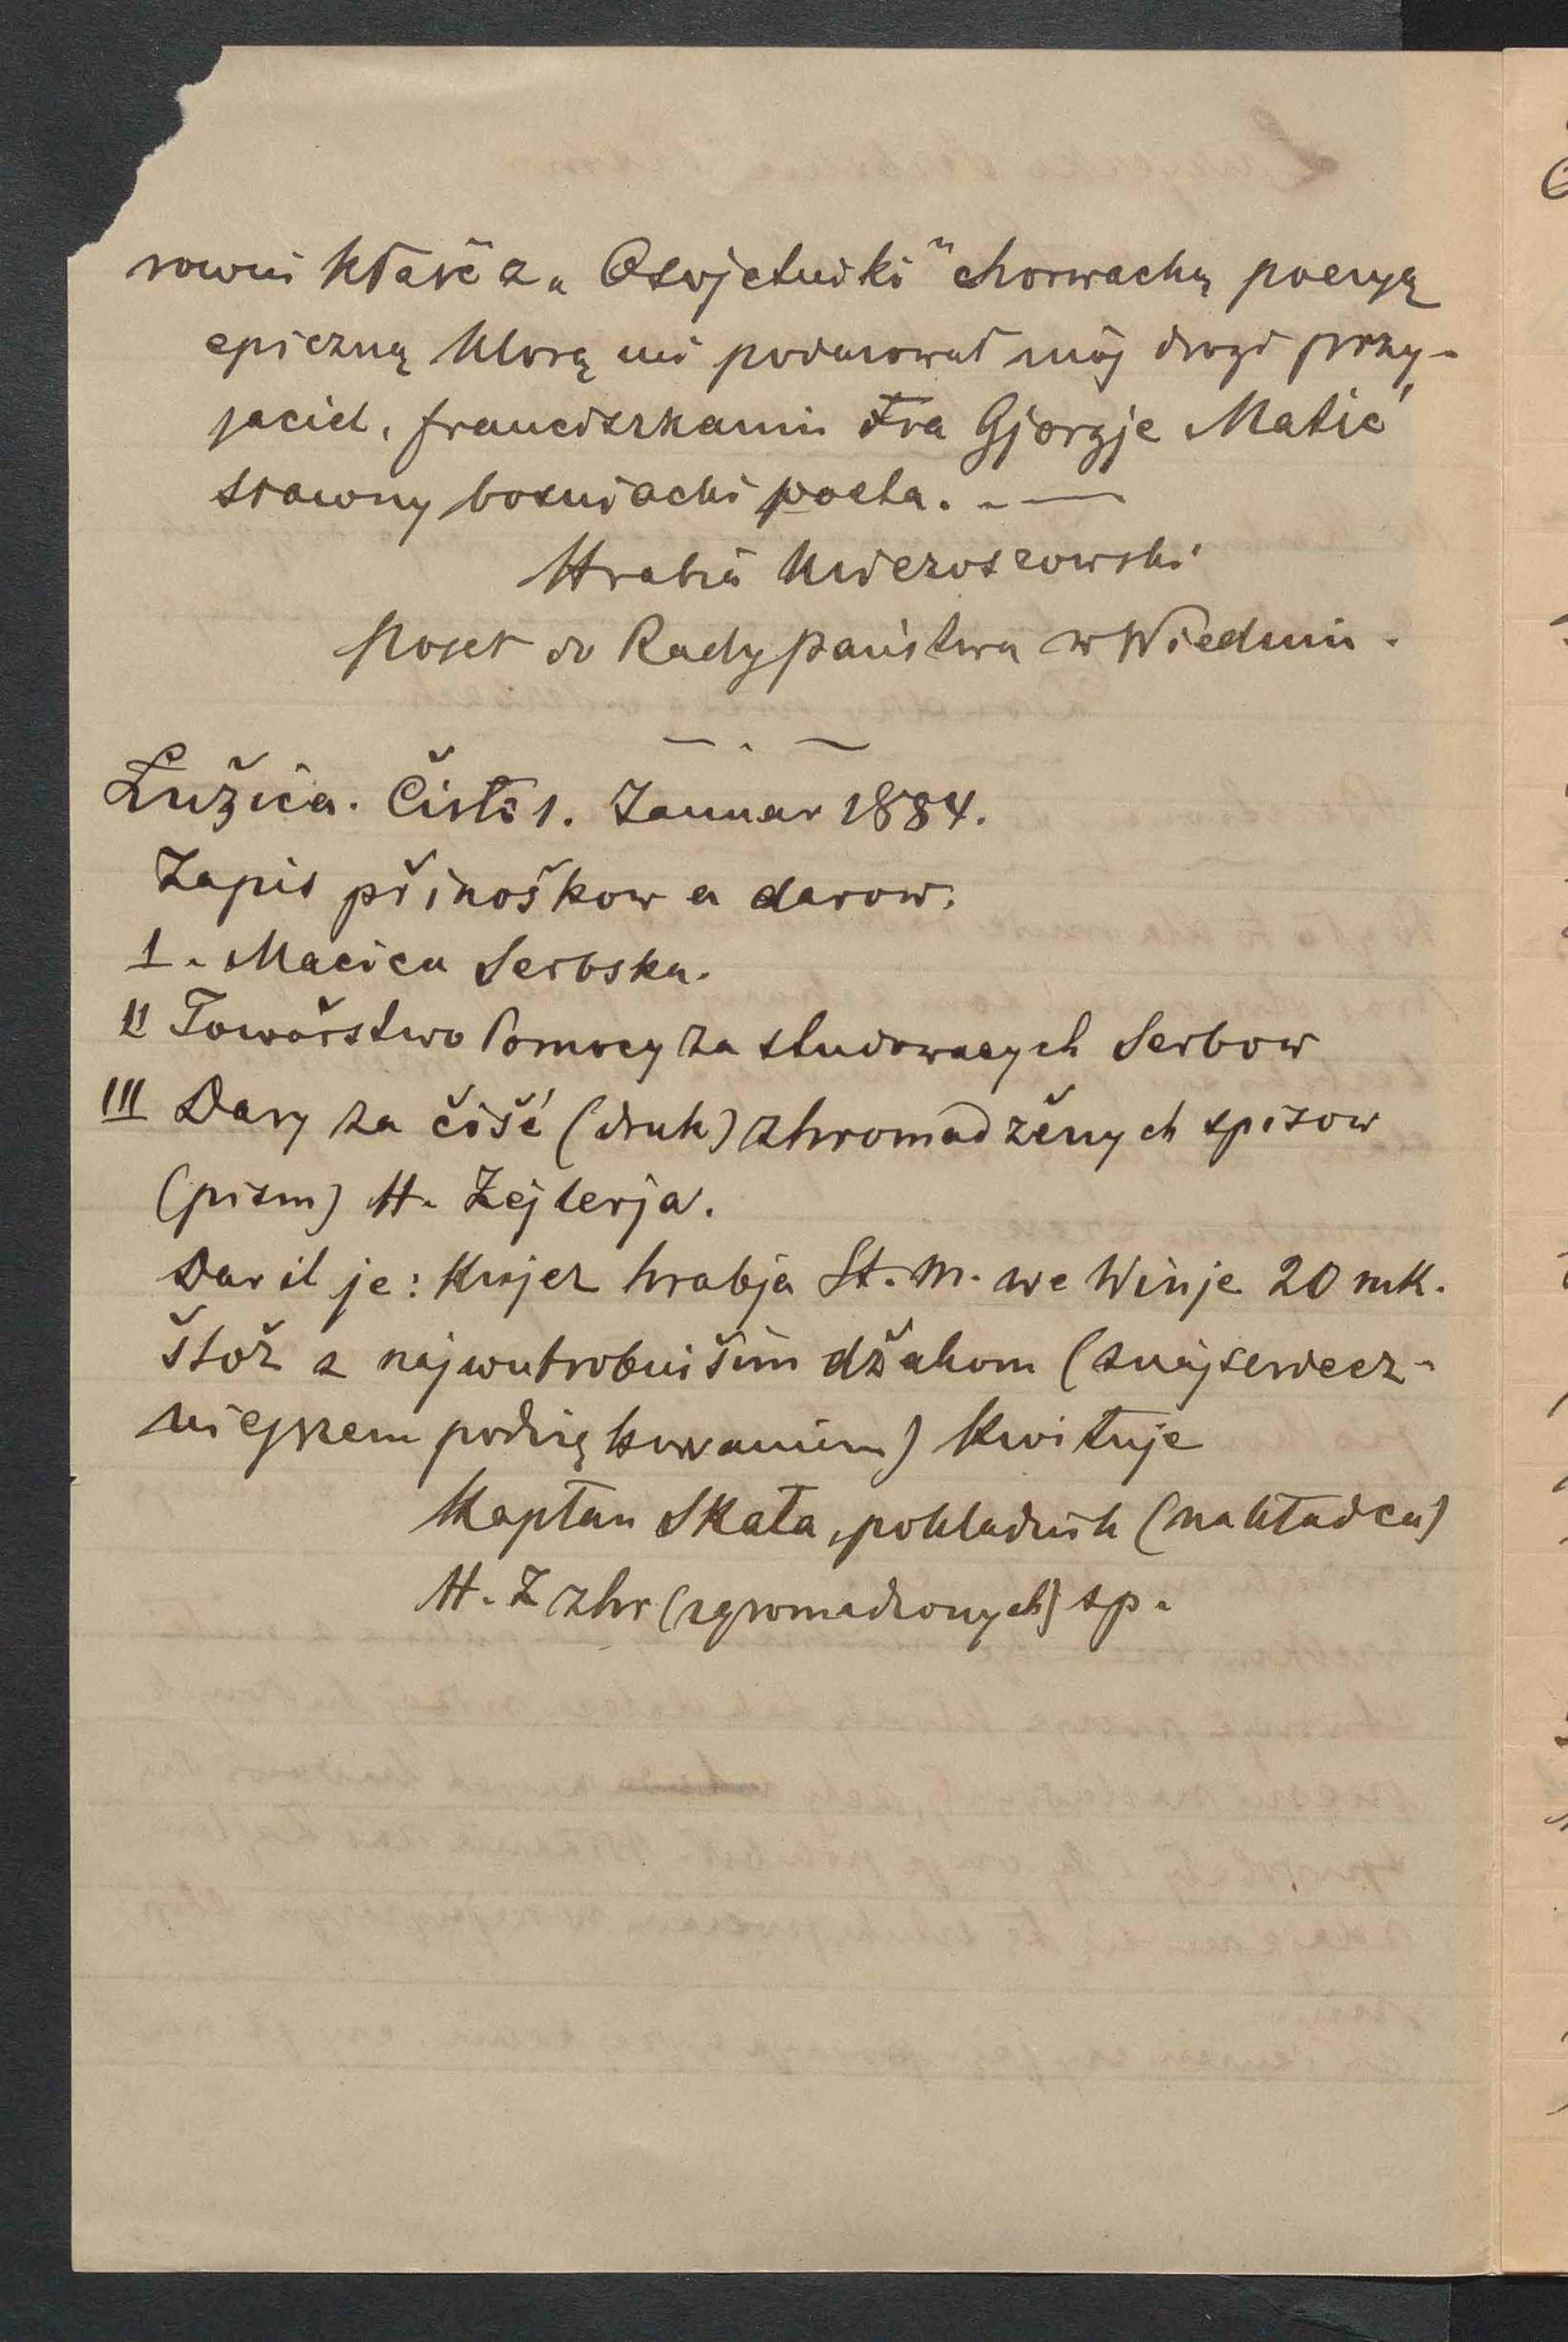 rowni kłaść z „Osvjetniki“ chorwacką poezyą
epiczną którą mi podarował mój drogi przy-
jaciel, franciszkanin Fra Gjorgje Matić
sławny bośniacki poeta. - —
Hrabia Mieroszowski
poseł do Rady państwa w Wiedniu.
Łužica. Čisło 1. Januar 1884.
Zapis přinoškow a darow.
I. Maćica Serbska.
II Towařstwo Pomocy za studowacych Serbow
III Dary za čišć (druk) zhromadźenych spisow
(pism) H. Zejlerja.
Daril je: Knjez hrabja St. M. we Winje 20 mk.
štož z najwutrobnišim dźakom (z najserdecz-
niejszem podziękowaniem) kwituje
Kapłan Skała, pokładnik (nakładca)
H. Z zhr (zgromadzonych) sp.